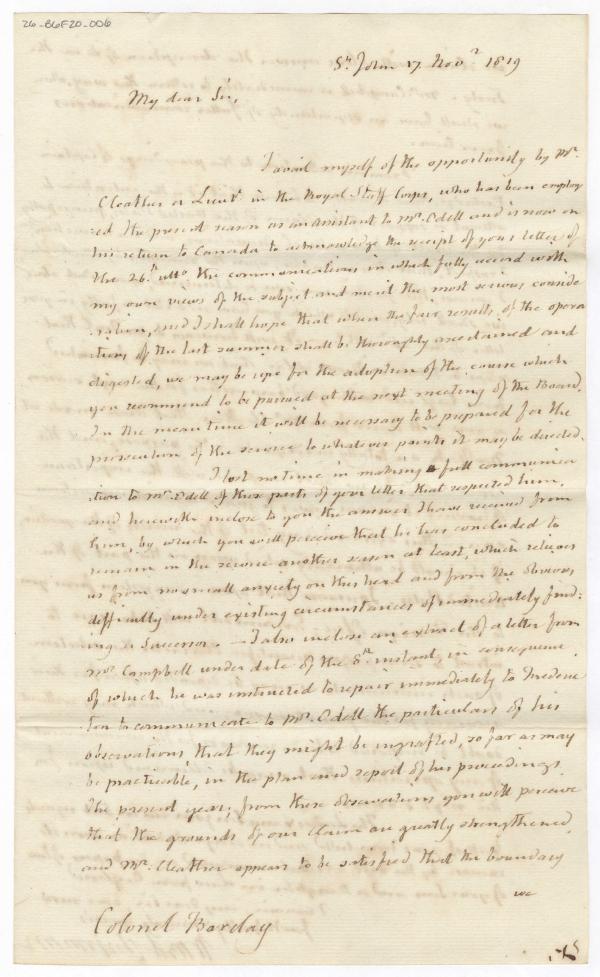 26-B6F20-006
St. John 17 Novr 1819
My dear Sir,
I avail myself of the opportunity by Mr.
Cleather a Lieut. in the Royal Staff Corps, who has been employ
:ed the present season as an assistant to Mr. Odell and is now on
his return to Canada to acknowledge the receipt of your letter of
the 26th. ulto. the communications in which fully accord with
my own views of the subject and merit the most serious conside
:ration, and I shall hope that when the fair results of the opera
:tions of the last summer shall be thoroughly ascertained and
digested, we may be ripe for the adoption of the course which
you recommend to be pursued at the next meeting of the Board.
In the mean time it will be necessary to be prepared for the
prosecution of the service to whatever points it may be directed.
I lost no time in making a full communica
:tion to Mr. Odell of those parts of your letter that respected him,
and herewith inclose to you the answer I have received from
him, by which you will perceive that he has concluded to
remain in the service another season at least, which relieves
us from no small anxiety on this head and from the obvious
difficulty under existing circumstances of immediately find:
:ing a Successor. — I also inclose an extract of a letter from
Mr. Campbell under date of the 8th. instant, in consequence
of which he was instructed to repair immediately to Frederic
:ton to communicate to Mr. Odell the particulars of his
observations, that they might be ingrafted, so far as may
be practicable, in the plan and report of his proceedings
the present year; from these observations you will perceive
that the grounds of our claim are greatly strengthened,
and Mr. Cleather appears to be satisfied that the boundary
we
Colonel Barclay